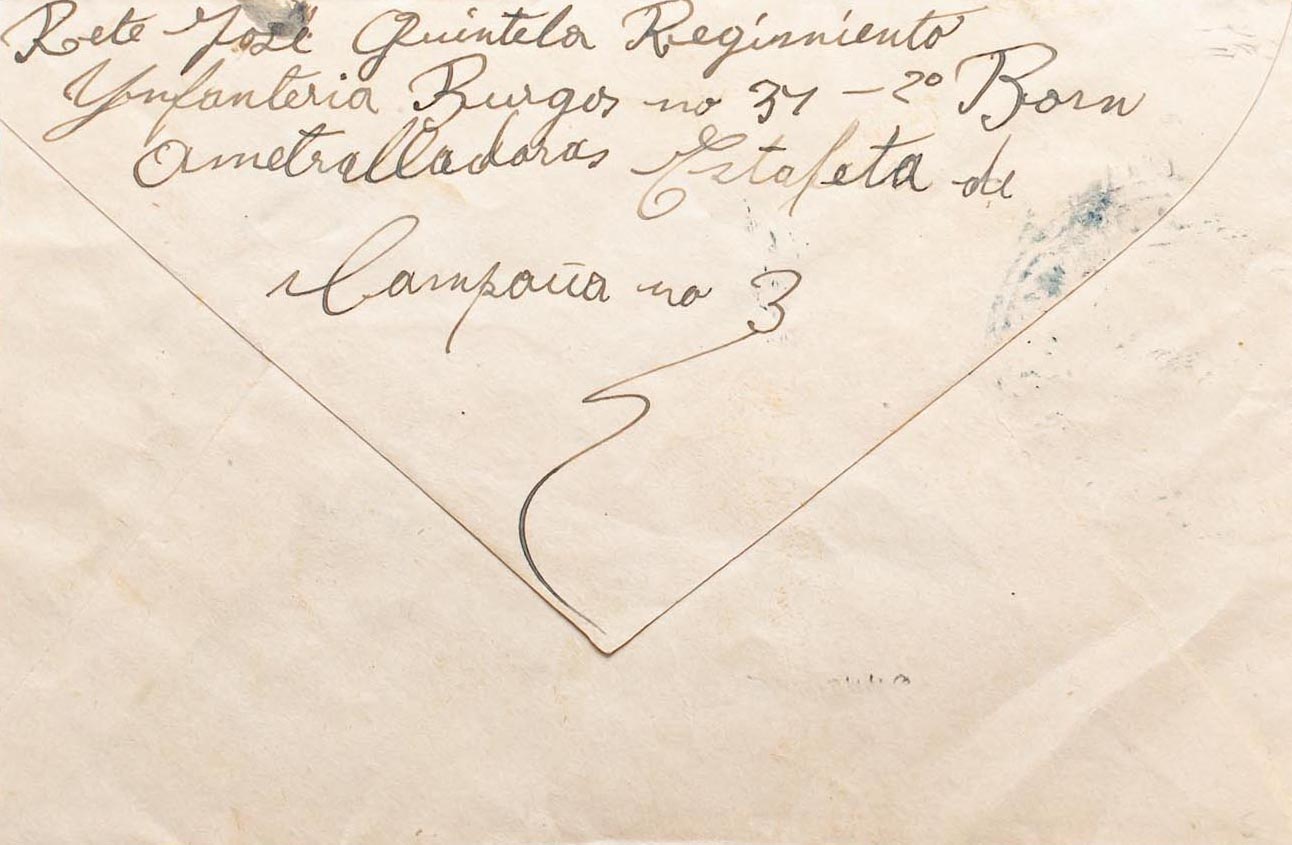 Rete José Quintela Regimiento
Ynfanteria Burgos no 31 - 2º Born
Ametralladoras Estafeta de
Campaña no 3